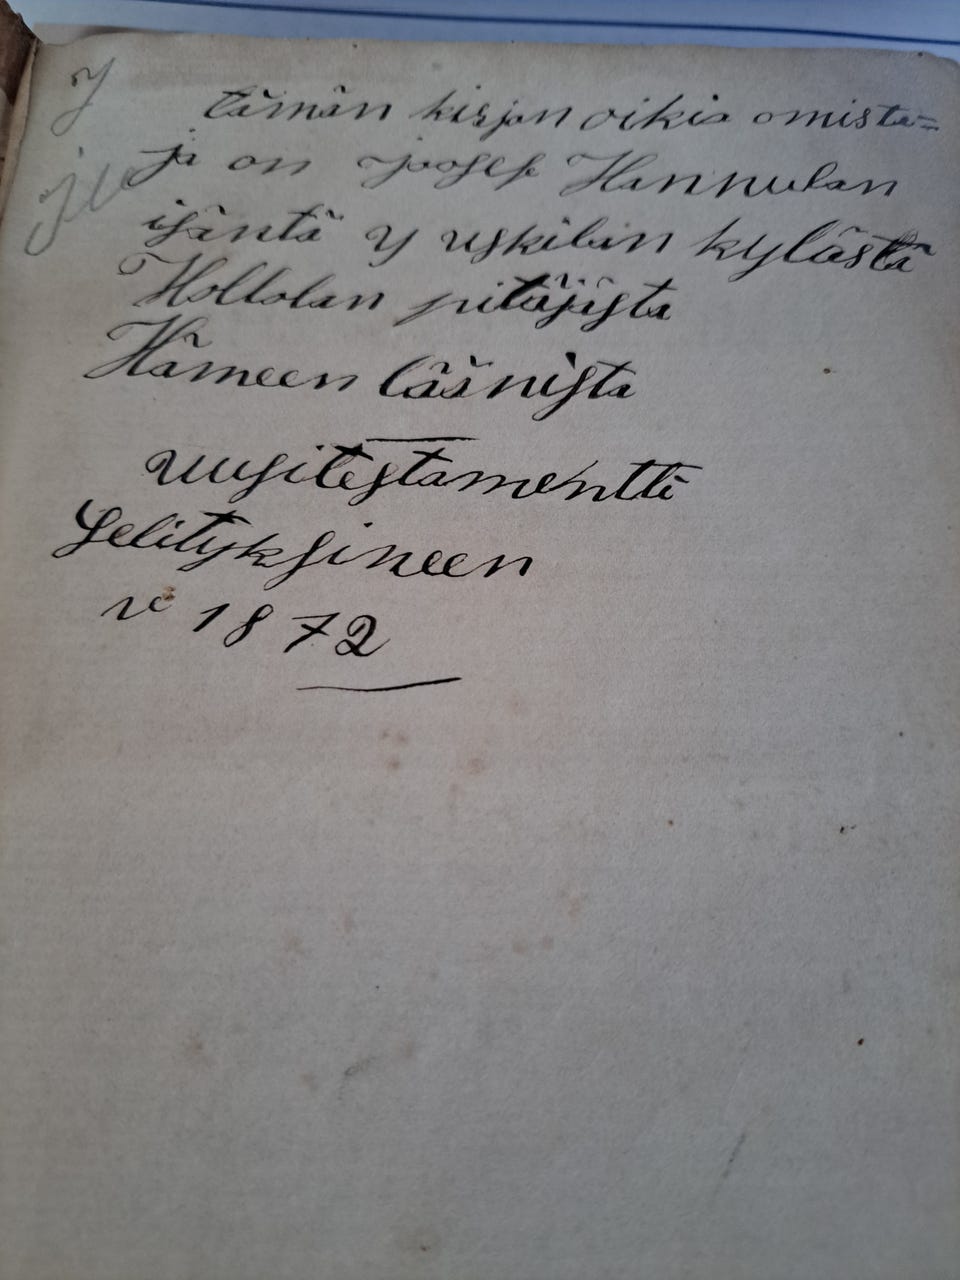 J
tämän kirjan oikia omista=
ja on joosep Hannulan
isäntä y uskilan kylästä
Hollolan pitäjästä
Hämeen läänistä
uusitestamentti
Selityksineen
v: 1872